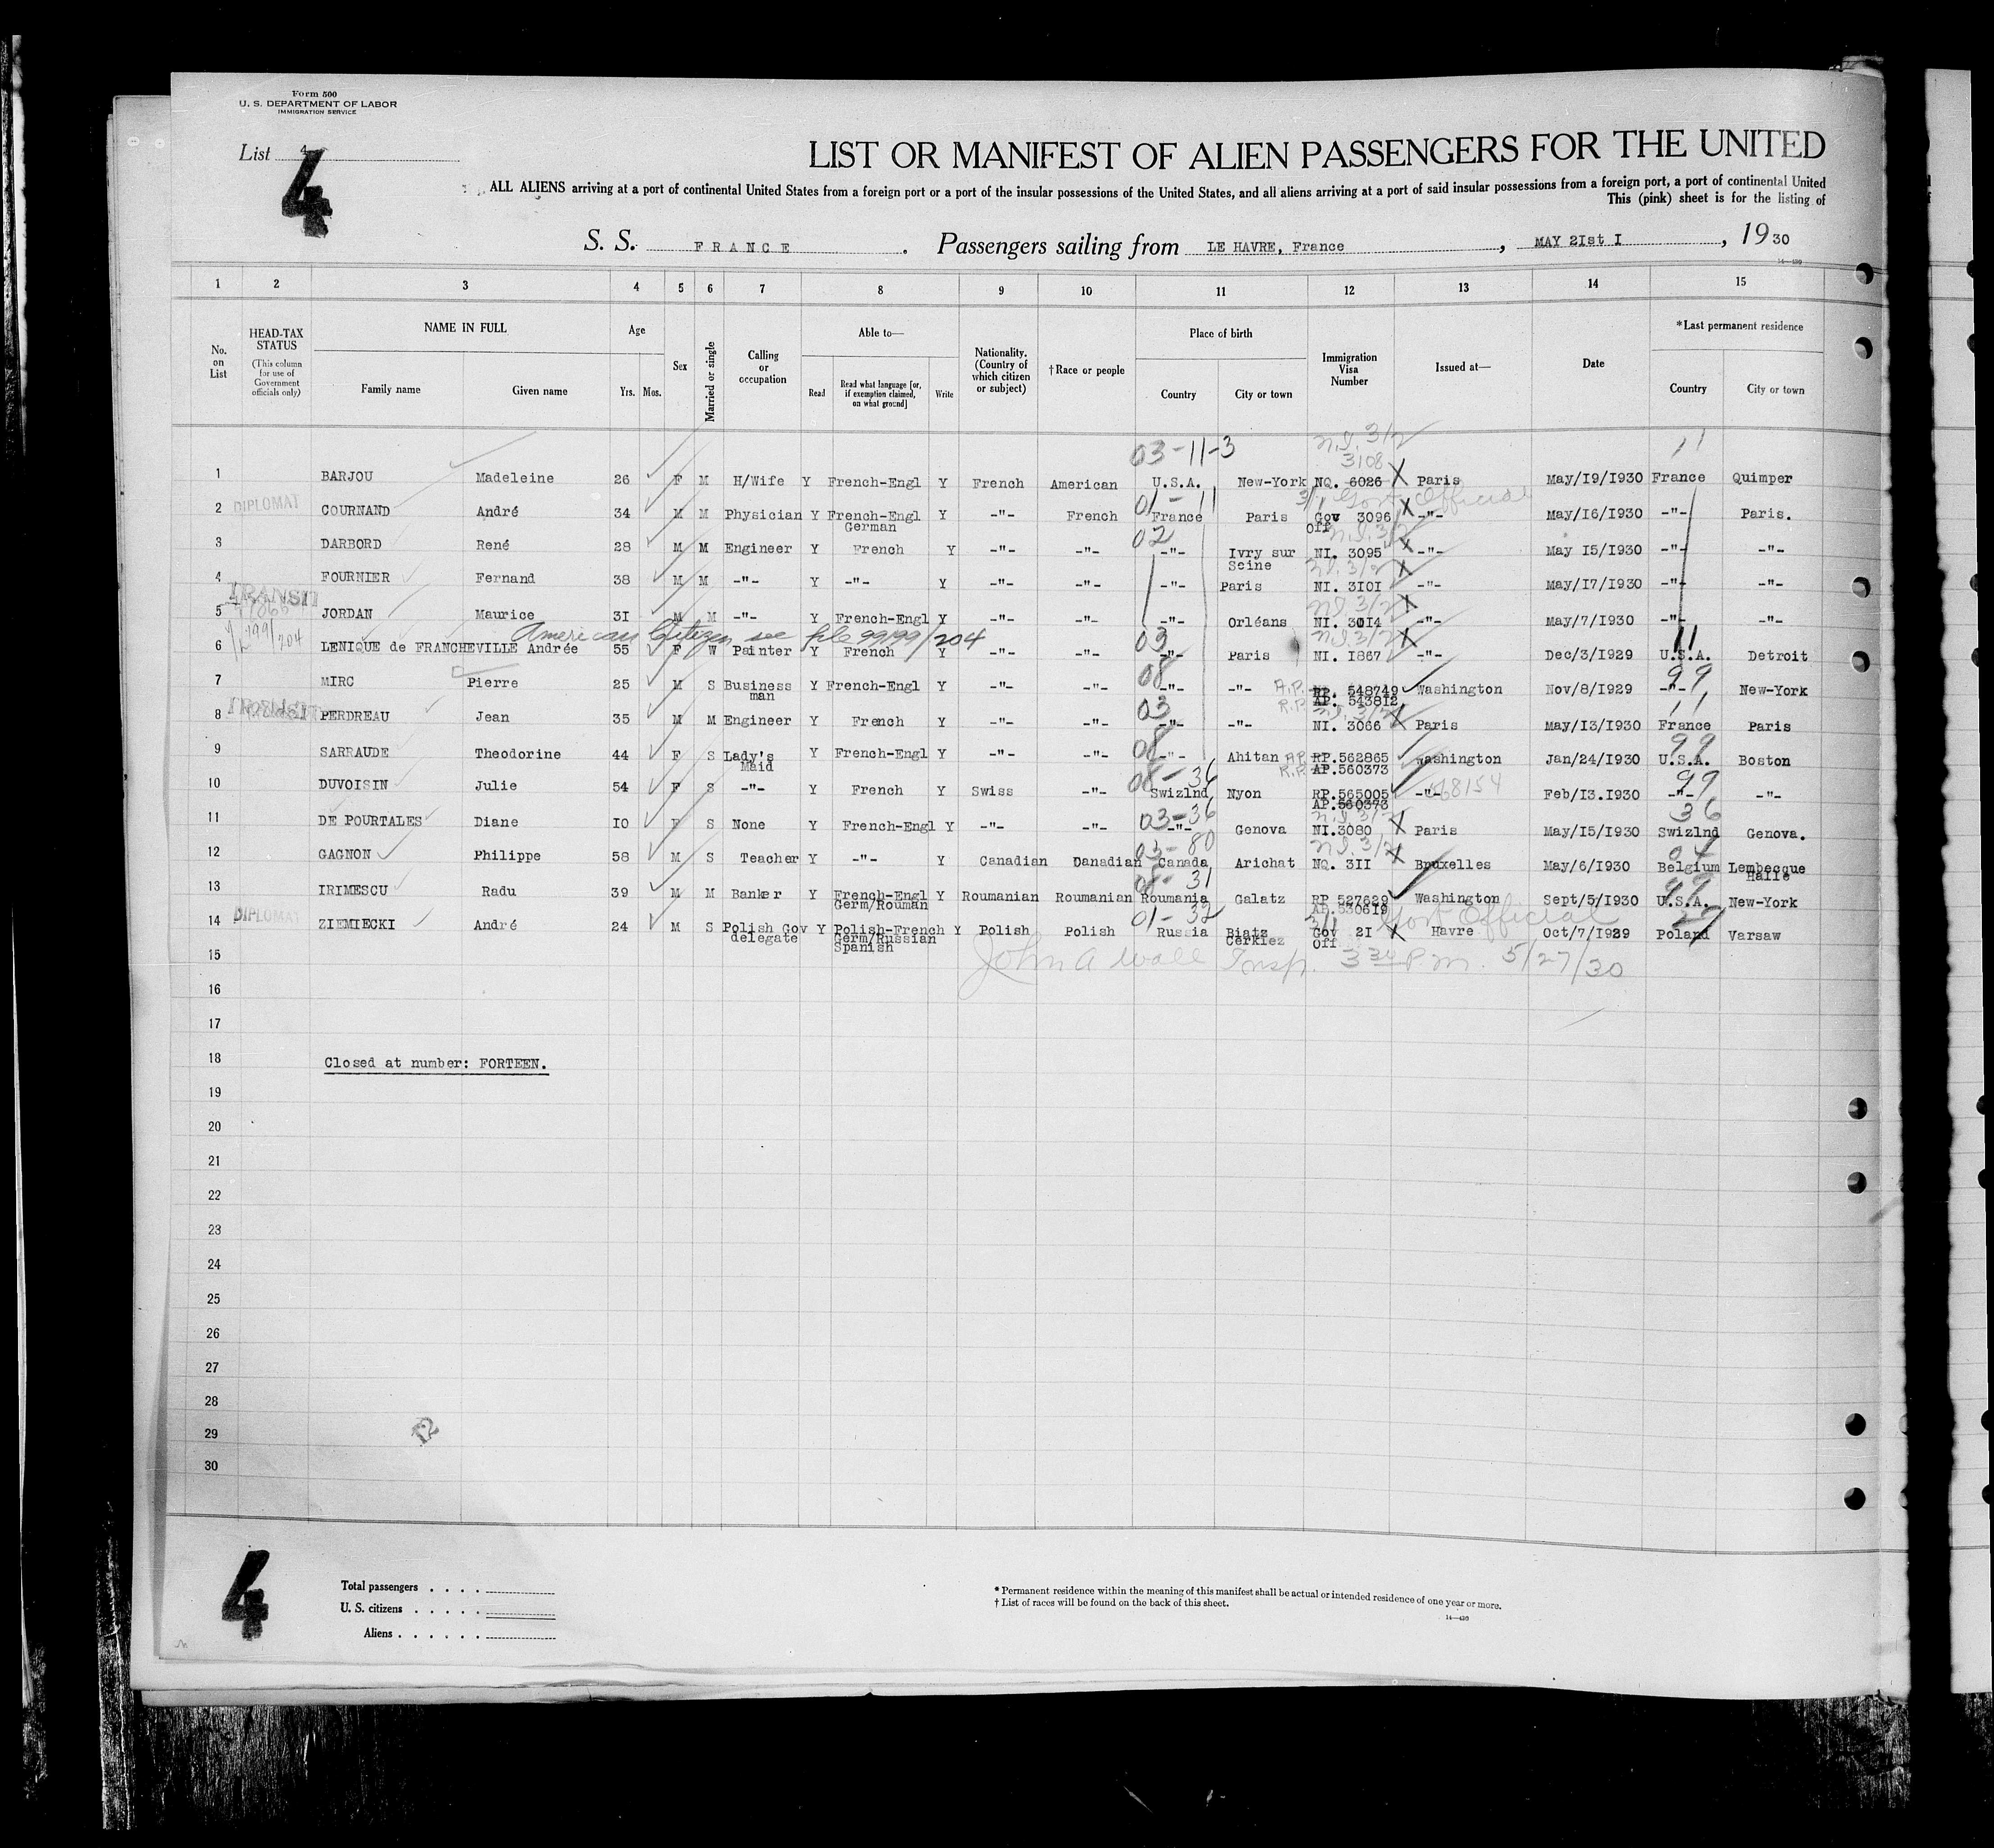 Form 500
U. S. DEPARTMENT OF LABOR
IMMIGRATION SERVICE
List 4
4
LIST OR MANIFEST OF ALIEN PASSENGERS FOR THE UNITED
ALL ALIENS arriving at a port of continental United States from a foreign port or a port of the insular possessions of the United States, and all aliens arriving at a port of said insular possessions from a foreign port, a port of continental United
This (pink) sheet is for the listing of
S. S. FRANCE. Passengers sailing from LE HAVRE, France, MAY 2Ist I, 1930
1 2 3 4 5 6 7 8 9 10 11 12 13 14 15
No. on List
HEAD-TAX STATUS (This column for use of Government officials only)
NAME IN FULL
Family name Given name
Age
Yrs. Mos.
Sex
Married or single
Calling or occupation
Able to—
Read Read what language [or, if exemption claimed, on what ground] Write
Nationality. (Country of which citizen or subject)
†Race or people
Place of birth
Country City or town
Immigration Visa Number
Issued at—
Date
*Last permanent residence
Country City or town
03-11-3 N.I. 3/2 11
3108
1 BARJOU Madeleine 26 F M H/Wife Y French-Engl Y French American U.S.A. New-York NQ. 6026 X Paris May/I9/I930 France Quimper
01-11 Gov't Official
2 DIPLOMAT COURNAND André 34 M M Physician Y French-Engl Y -"- French France Paris Gov 3096 X -"- May/I6/I930 -"- Paris.
German off
02 N.I. 3/2
3 DARBORD René 28 M M Engineer Y French Y -"- -"- -"- Ivry sur NI. 3095 X -"- May I5/I930 -"- -"-
Seine N.I. 3/2
4 FOURNIER Fernand 38 M M -"- Y -"- Y -"- -"- -"- Paris NI. 3I0I X -"- May/I7/I930 -"- -"-
TRANSIT
N.I. 3/2
5 JORDAN Maurice 3I M M -"- Y French-Engl Y -"- -"- -"- Orléans NI. 30I4 X -"- May/7/I930 -"- -"-
American Citizen see file 99199/204 03 N.I. 3/2 11
6 LENIQUE de FRANCHEVILLE Andrée 55 F W Painter Y French Y -"- -"- -"- Paris NI. I867 X -"- Dec/3/I929 U.S.A. Detroit
08 99
7 MIRC Pierre 25 M S Business Y French-Engl Y -"- -"- -"- -"- A.P. RP. 548749 Washington Nov/8/I929 -"- New-York
man R.P. AP. 543812
TRANSIT 03 N.I. 3/2 11
8 PERDREAU Jean 35 M M Engineer Y French Y -"- -"- -"- -"- NI. 3066 X Paris May/I3/I930 France Paris
08 99
9 SARRAUDE Theodorine 44 F S Lady's Y French-Engl Y -"- -"- -"- Ahitan A.P. RP.562865 Washington Jan/24/I930 U.S.A. Boston
Maid R.P. AP.560373
08-36 99
10 DUVOISIN Julie 54 F S -"- Y French Y Swiss -"- Swizlnd Nyon RP.565005 -"- Feb/I3.I930 -"- -"-
AP.560373
03-36 N.I. 3/2 36
11 DE POURTALES Diane I0 F S None Y French-Engl Y -"- -"- -"- Genova NI.3080 X Paris May/I5/I930 Swizlnd Genova.
03-80 N.I. 3/2 04
12 GAGNON Philippe 58 M S Teacher Y -"- Y Canadian Danadian Canada Arichat NQ. 3II X Bruxelles May/6/I930 Belgium Lembecque
Halle
08-31 99
13 IRIMESCU Radu 39 M M Banker Y French-Engl Y Roumanian Roumanian Roumania Galatz RP 527629 Washington Sept/5/I930 U.S.A. New-York
Germ/Rouman AP.530619
01-32 Gov't Official 27
14 DIPLOMAT ZIEMIECKI André 24 M S Polish Gov Y Polish-French Y Polish Polish Russia Biatz Gov 2I X Havre Oct/7/I929 Poland Varsaw
delegate Germ/Russian Cerkiez off
Spanish
15 John A Wall Insp. 3 30 P.M. 5/27/30
16
17
18 Closed at number: FORTEEN.
19
20
21
22
23
24
25
26
27
28
29
30
12
4
Total passengers . . . .
U. S. citizens . . . . .
Aliens . . . . . .
* Permanent residence within the meaning of this manifest shall be actual or intended residence of one year or more.
† List of races will be found on the back of this sheet.
14—430